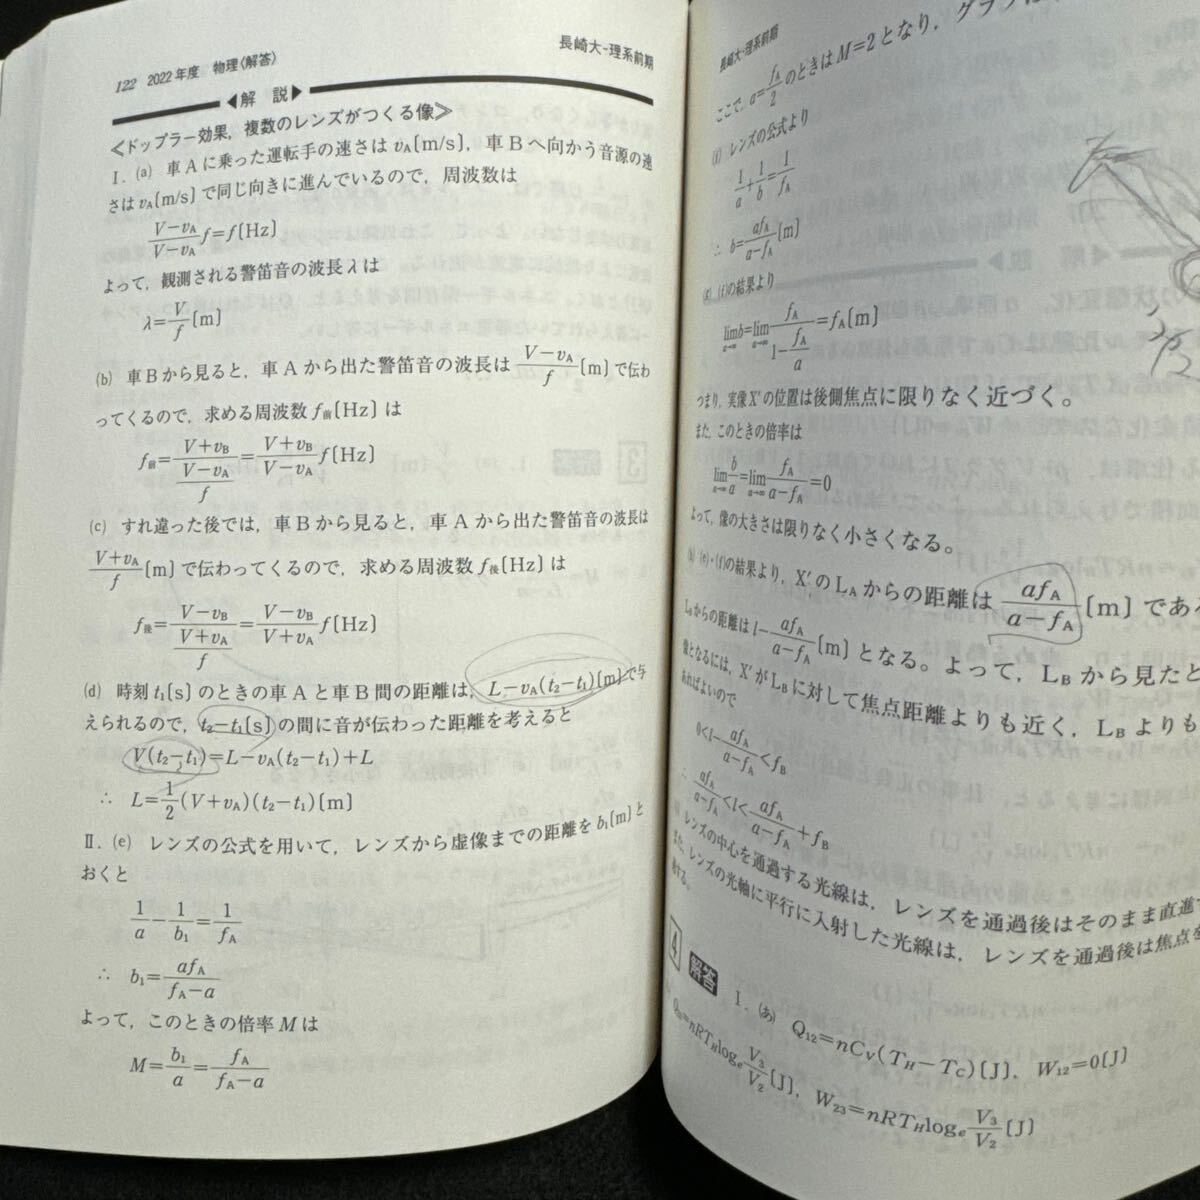 122 2022年度 物理〈解答〉 長崎大-理系前期
◀解 説▶
≪ドップラー効果，複数のレンズがつくる像≫
Ⅰ．(a) 車Aに乗った運転手の速さは vA〔m/s〕，車Bへ向かう音源の速
さは vA〔m/s〕で同じ向きに進んでいるので，周波数は
(V−vA)/(V−vA) f=f〔Hz〕
よって，観測される警笛音の波長λは
λ=V/f〔m〕
(b) 車Bから見ると，車Aから出た警笛音の波長は (V−vA)/f〔m〕で伝わ
ってくるので，求める周波数 f前〔Hz〕は
f前=(V+vB)/((V−vA)/f)=(V+vB)/(V−vA) f〔Hz〕
(c) すれ違った後では，車Bから見ると，車Aから出た警笛音の波長は
(V+vA)/f〔m〕で伝わってくるので，求める周波数 f後〔Hz〕は
f後=(V−vB)/((V+vA)/f)=(V−vB)/(V+vA) f〔Hz〕
(d) 時刻 t1〔s〕のときの車Aと車B間の距離は，L−vA(t2−t1)〔m〕で与
えられるので，t2−t1〔s〕の間に音が伝わった距離を考えると
V(t2−t1)=L−vA(t2−t1)+L
∴ L=1/2(V+vA)(t2−t1)〔m〕
Ⅱ．(e) レンズの公式を用いて，レンズから虚像までの距離を b1〔m〕と
おくと
1/a−1/b1=1/fA
∴ b1=afA/(fA−a)
よって，このときの倍率Mは
M=b1/a=fA/(fA−a)
長崎大-理系前期
ここで，a=fA/2 のときはM=2となり，グラフは
(f) レンズの公式より
1/a+1/b=1/fA
∴ b=afA/(a−fA)〔m〕
(g) (f)の結果より
lim a→∞ b=lim a→∞ fA/(1−fA/a)=fA〔m〕
つまり，実像X′の位置は後側焦点に限りなく近づく。
また，このときの倍率は
lim a→∞ b/a=lim a→∞ fA/(a−fA)=0
よって，像の大きさは限りなく小さくなる。
(h) (e)・(f)の結果より，X′のLAからの距離は afA/(a−fA)〔m〕であ
LBからの距離は l−afA/(a−fA)〔m〕となる。よって，LBから見たと
像となるには，X′がLBに対して焦点距離よりも近く，LBよりも
あればよいので
0<l−afA/(a−fA)<fB
∴ afA/(a−fA)<l<afA/(a−fA)+fB
レンズの中心を通過する光線は，レンズを通過後はそのまま直進
また，レンズの光軸に平行に入射した光線は，レンズを通過後は焦点を
過する。
4 解答 Ⅰ．(あ) Q12=nCV(TH−TC)〔J〕，W12=0〔J〕
Q23=nRTHloge V3/V2〔J〕，W23=nRTHloge V3/V2〔J〕